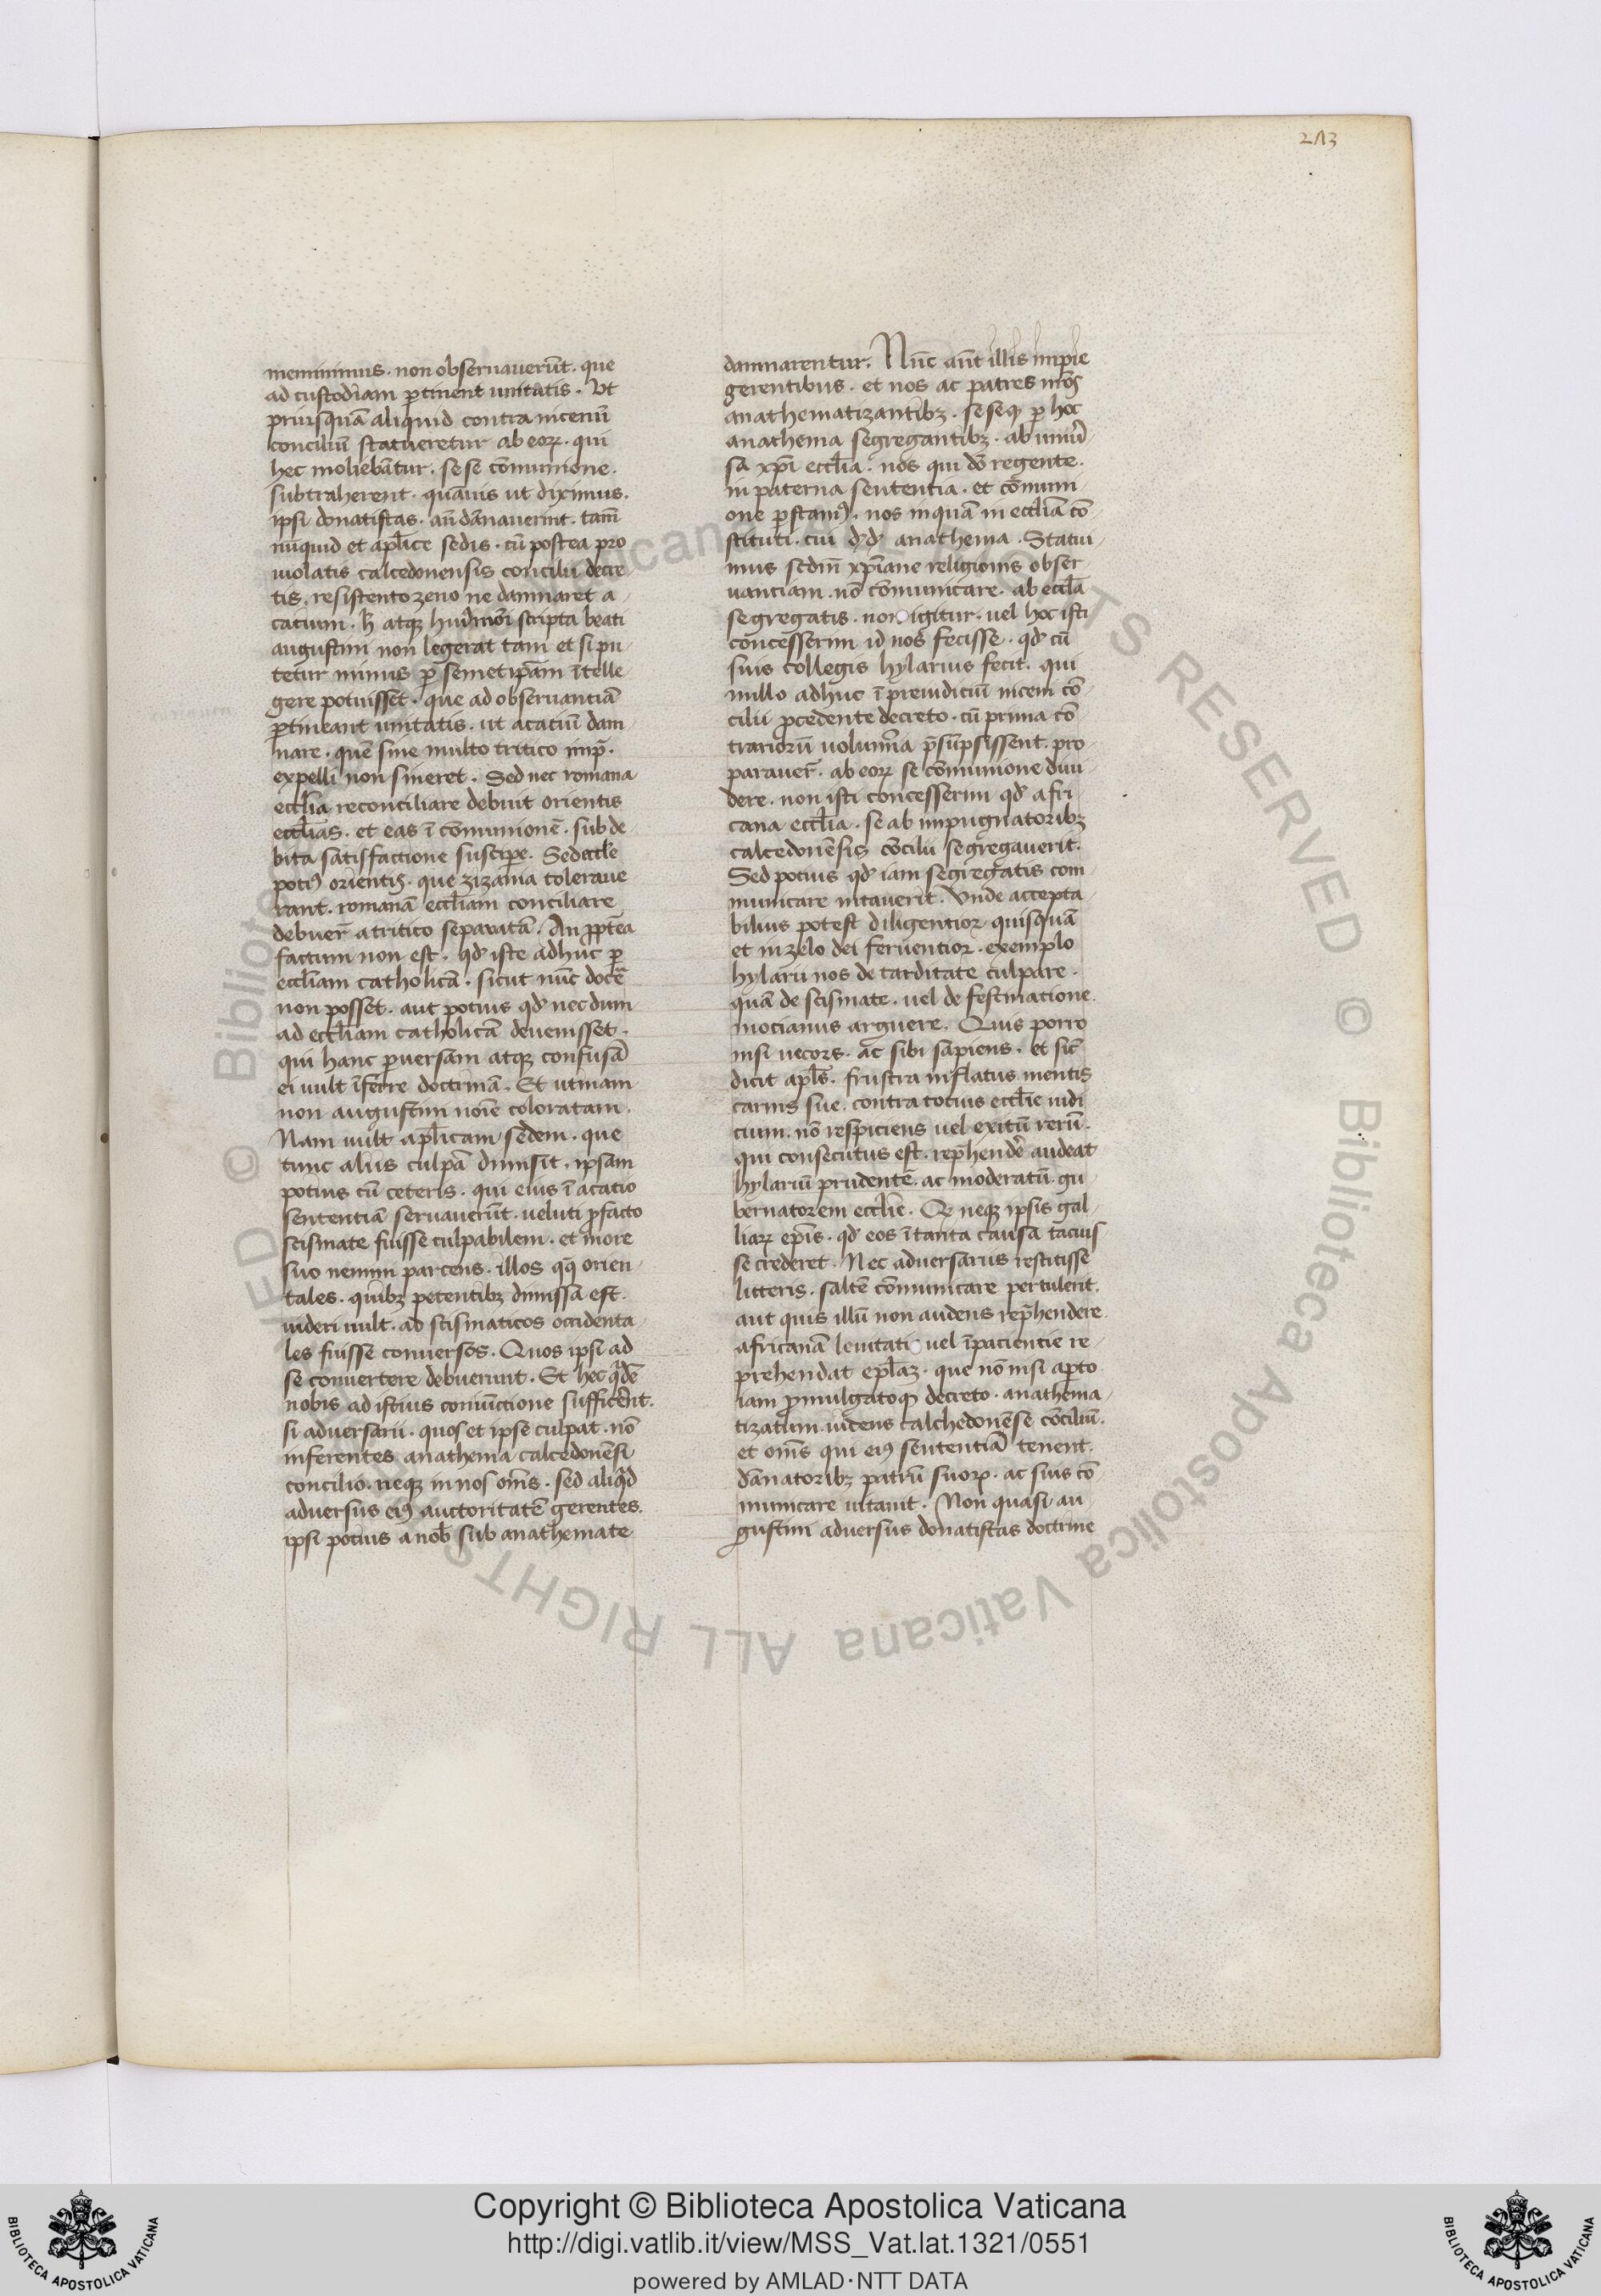 273
meminimus. non observaverūt. que
ad custodiam ꝑtinent unitatis. Ut
priusquā aliquid contra nicenū
conciliū statueretur ab eoꝝ. qui
hec moliebātur. sese cōmunione.
subtraherent. quāvis ut diximus.
ipsi donatistas. aū dānaverint. tam̄
nūquid et apl̄ice sedis. cū postea pro
violatis calcedonensis concilii decre
tis. resistento zeno ne damnaret a
catium. h̄ atqꝫ hui᷒mōi scripta beati
augustini non legerat tam et si pu
tetur minus ꝑ semetip̄am ītelle
gere potuisset. que ad observantiā
ꝑtineant unitatis. ut acatiū dam
nare. quē sine multo tritico imp̄.
expelli non sineret. Sed nec romana
eccl̄ia reconciliare debuit orientis
eccl̄ias. et eas ī cōmunionē. sub de
bita satisfactione suscipe. Sed eccl̄e
poti᷒ orientis. que zizania tolerave
rant. romanā eccl̄iam conciliare
debuer̄ a tritico separatā. An ꝓpt̄ea
factum non est. qd̓ iste adhuc ꝑ
eccl̄iam catholicā. sicut nūc docē
non posset. aut potius qd̓ nec dum
ad eccl̄iam catholicā devenisset.
qui hanc ꝑversam atqꝫ confusā
ei vult īferre doctrinā. Et utinam
non augustini noīe coloratam.
Nam vult apl̄icam sedem. que
tunc aliis culpā dimisit. ipsam
potius cū ceteris. qui eius ī acatio
sententiā servaverūt. veluti ꝓ facto
scismate fuisse culpabilem. et more
suo nemini parcens. illos qq̄ orien
tales. quibꝫ petentibꝫ dimissa est.
videri vult. ab scismaticos occidenta
les fuisse conversos. Quos ipsi ad
se convertere debuerunt. Et hec qͥdē
nobis ad istius coniūctione sufficer̄ēt.
si adversarii. quos et ipse culpat. nō
inferentes anathema calcedonēsi
concilio. neqꝫ in nos om̄s. sed aliqͥd
adversus ei᷒ auctoritatē gerentes.
ipsi potius a nob̄ sub anathemate
damnarentur. Nūc aūt illis impie
gerentibus. et nos ac patres nr̄os
anathematizantibꝫ. seseqꝫ ꝑ hoc
anathema segregantibꝫ. ab univ̓
sa xp̄i eccl̄ia. nos qui dō regente.
in paterna sententia. et cōmuni
one ꝑstam᷒. nos inquā in eccl̄ia cō
stituti. cui d̓d̓ anathema. Statui
mus scdm̄ xp̄iane religionis obser
vanciam. nō cōmunicare. ab eccl̄a
segregatis. non igitur. vel hoc isti
concesserim id nos fecisse. qd̓ cū
suis collegis hylarius fecit. qui
nullo adhuc ī preiudiciū niceni cō
cilii ꝓcedente decreto. cū prima cō
trariorū volumīa p̄sūpsissent. pro
paraver̄. ab eoꝝ se cōmunione divi
dere. non isti concesserim qd̓ afri
cana eccl̄ia. se ab impugnatoribꝫ
calcedonēsis cōcilii segregaverit.
Sed potius qd̓ iam segregatis com
municare vitaverit. Unde accepta
bilius potest diligentior quisquā
et in zelo dei ferventior. exemplo
hylarii nos de tarditate culpare.
quā de scismate. vel de festinatione
mocianus arguere. Quis porro
nisi vecors. ac sibi sapiens. et sic̄
dicit apl̄s. frustra inflatus mentis
carnis sue. contra totius eccl̄ie iudi
cium. nō respiciens vel exitū rerū.
qui consecutus est. rep̄hendē audeat
hylariū prudentē. ac moderatū. gu
bernatorem eccl̄ie. Q neqꝫ ipsis gal
liaꝝ ep̄is. qd̓ eos ī tanta causa tacuis
se crederet. Nec adversarus restitisse
litteris. saltē cōmunicare pertulerit.
aut quis illū non audens rep̄hendere
africanā levitati vel īpacientie re
prehendat epl̄aꝫ. que nō nisi aꝑto
iam ꝓmulgatoqꝫ decreto. anathema
tizatum. videns calchedonēse cōciliū.
et om̄s qui ei᷒ sententiā tenent.
dānatoribꝫ patrū suoꝝ. ac suis cō
municare vitavit. Non quasi au
gustini adversus donatistas doctrine
Copyright © Biblioteca Apostolica Vaticana
http://digi.vatlib.it/view/MSS_Vat.lat.1321/0551
powered by AMLAD·NTT DATA
BIBLIOTECA APOSTOLICA VATICANA
BIBLIOTECA APOSTOLICA VATICANA
© Biblioteca Apostolica Vaticana ALL RIGHTS RESERVED © Biblioteca Apostolica Vaticana ALL RIGHTS